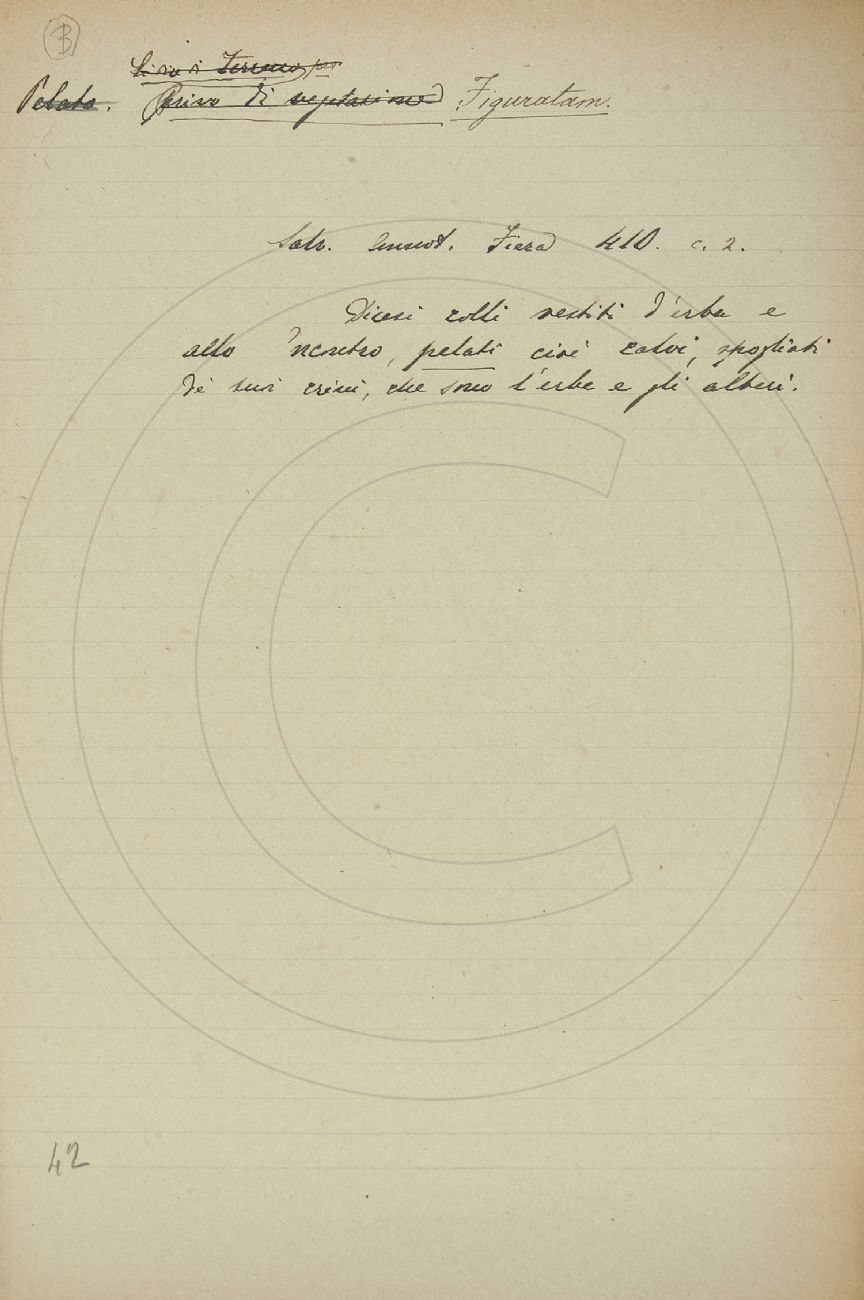 B
Terreno per
Pelato. Privo di vegetazione Figuratam.
Salv. Annot. Fiera 410. c. 2.
Dicesi colli vestiti d'erba e
allo 'ncontro, pelati cioè calvi, spogliati
de' suoi crini, che sono l'erbe e gli alberi.
42